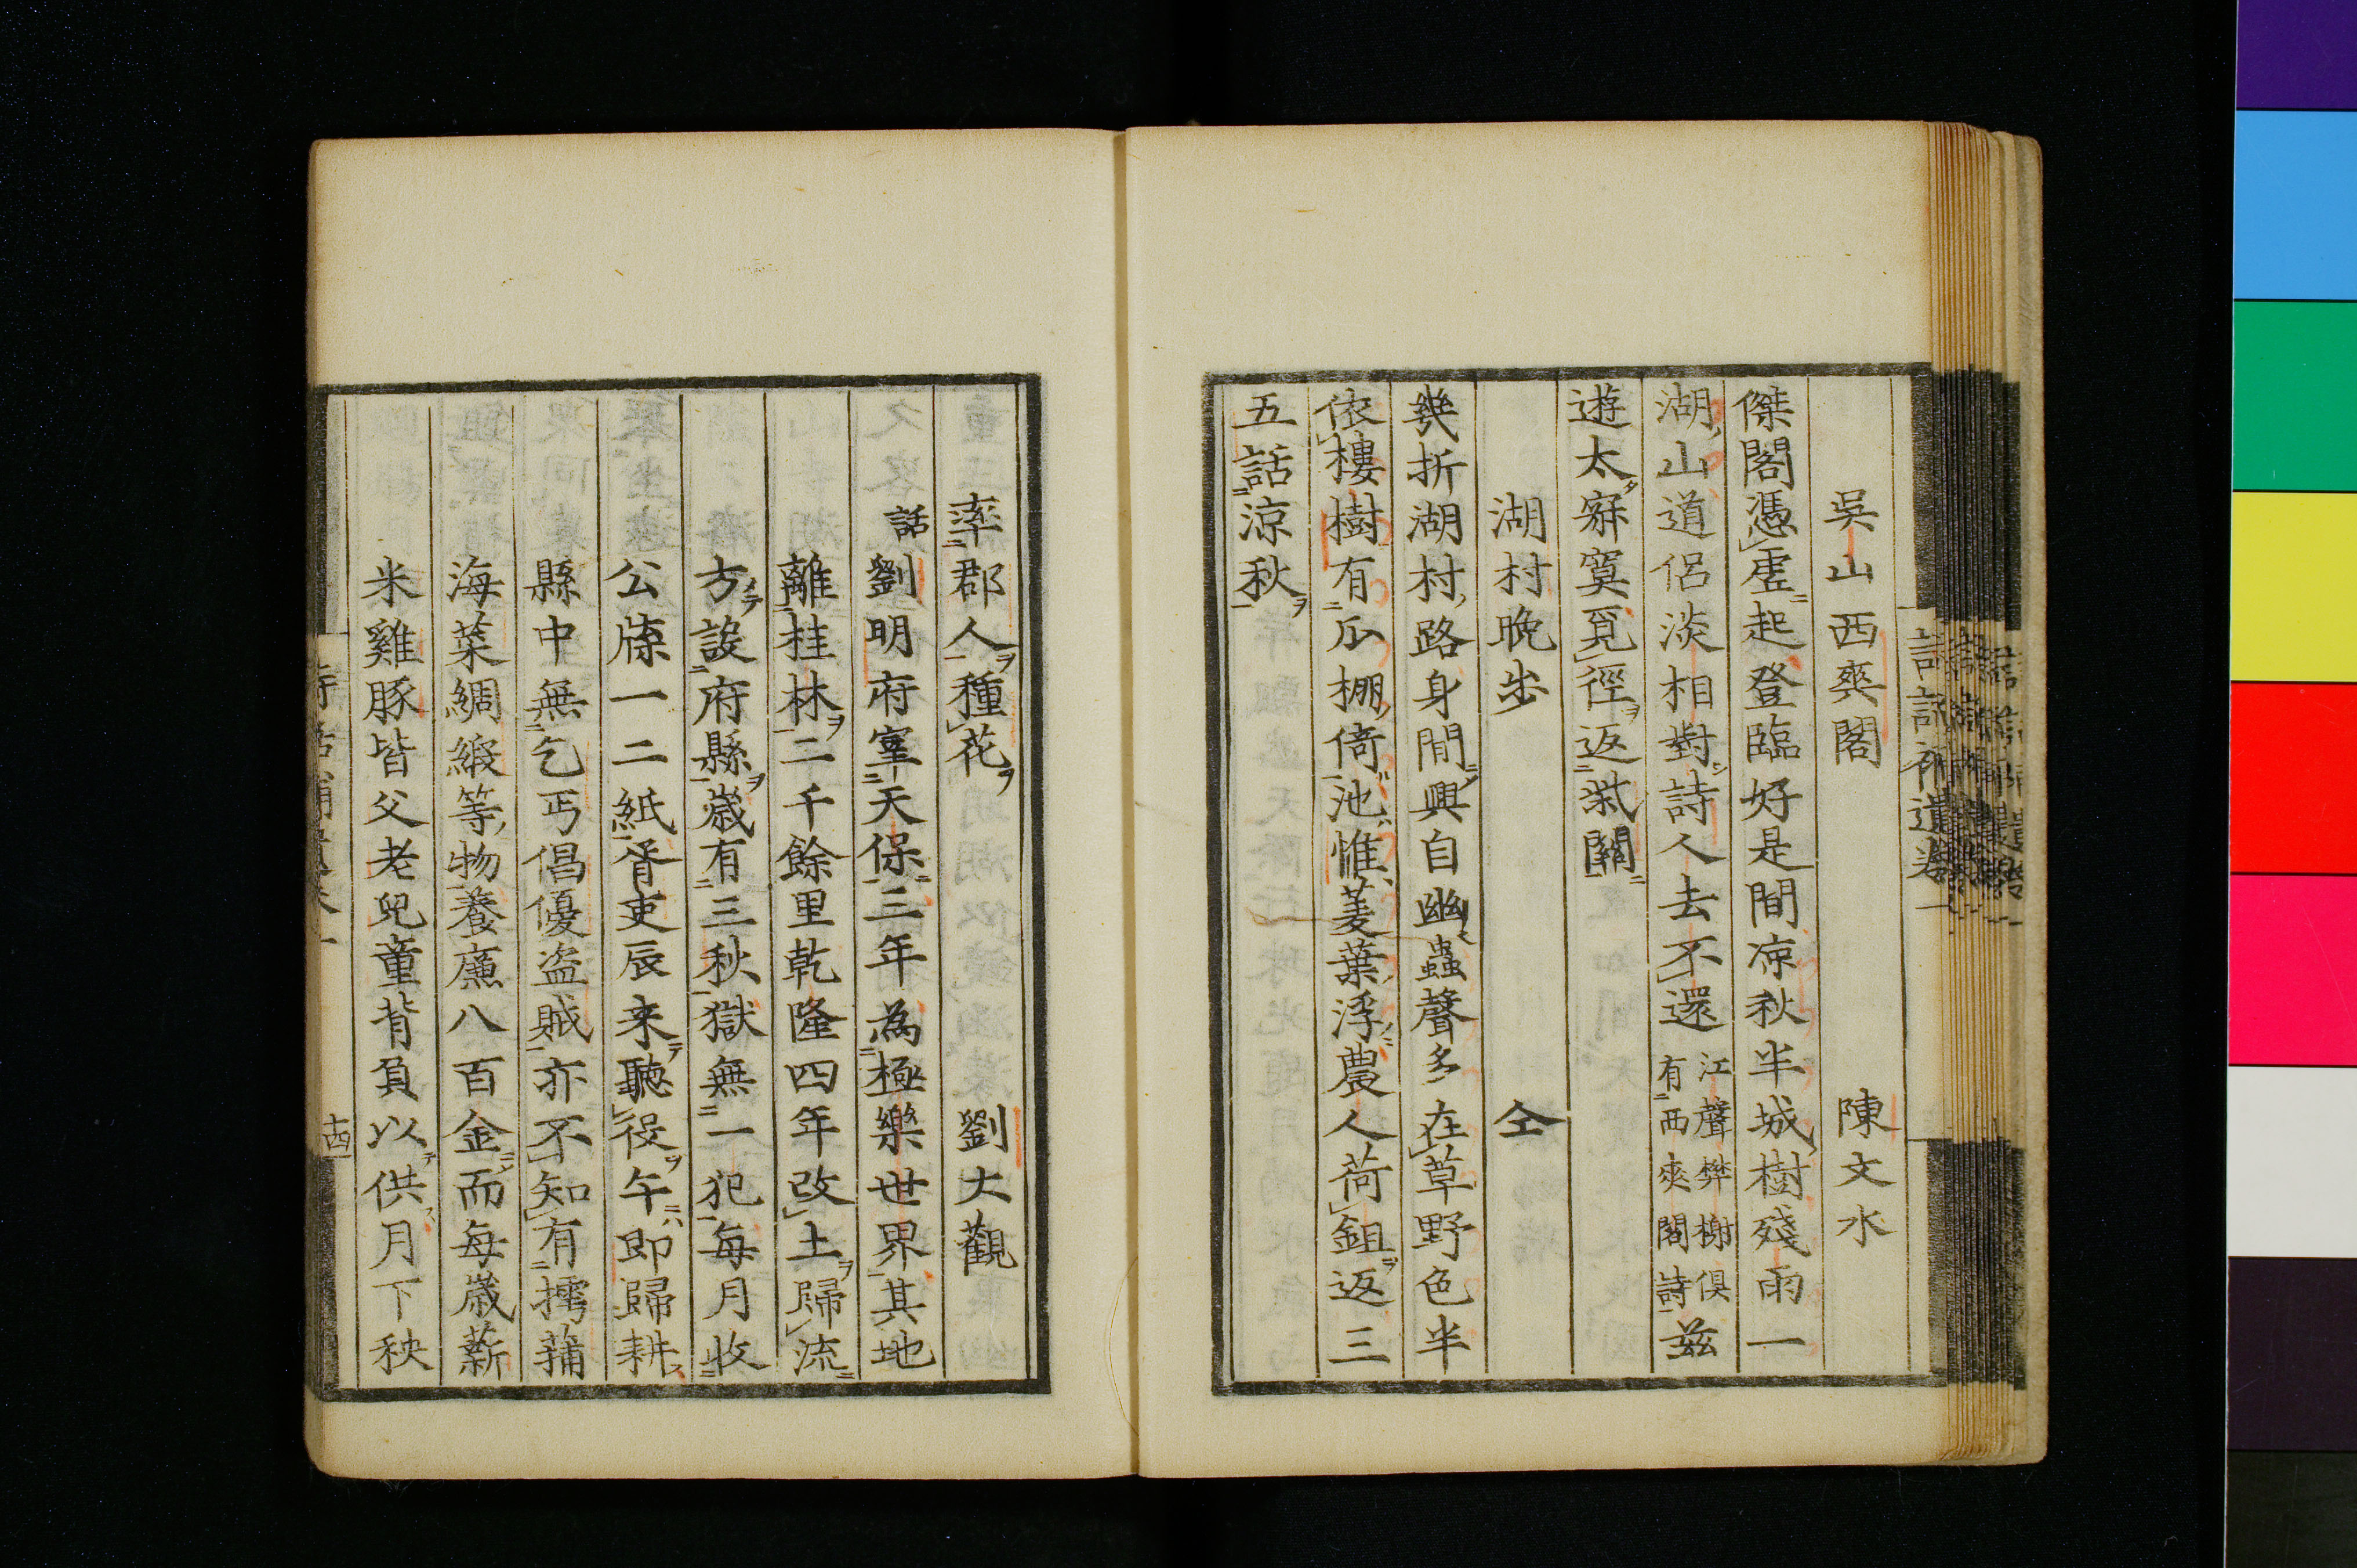 吳山西爽閣　陳文水
傑閣憑虛起登臨好是間凉秋半城樹殘雨一
湖山道侶淡相對詩人去不還江聲樊榭俱有西爽閣詩茲
遊太寂寞覓徑返柴關
湖村晚步　仝
幾折湖村路身閒興自幽蟲聲多在草野色半
依樓樹有瓜棚倚池惟菱葉浮農人荷鉏返三
五話涼秋
率郡人種花　劉大觀
話劉明府宰天保三年為極樂世界其地
離桂林二千餘里乾隆四年改土歸流
方設府縣歲有三秋獄無一犯每月收
公牒一二紙胥吏辰来聽役午即歸耕
縣中無乞丐倡優盗賊亦不知有摴蒱
海菜綢緞等物養廉八百金而每歲薪
米雞豚皆父老兒童背負以供月下秧
十四